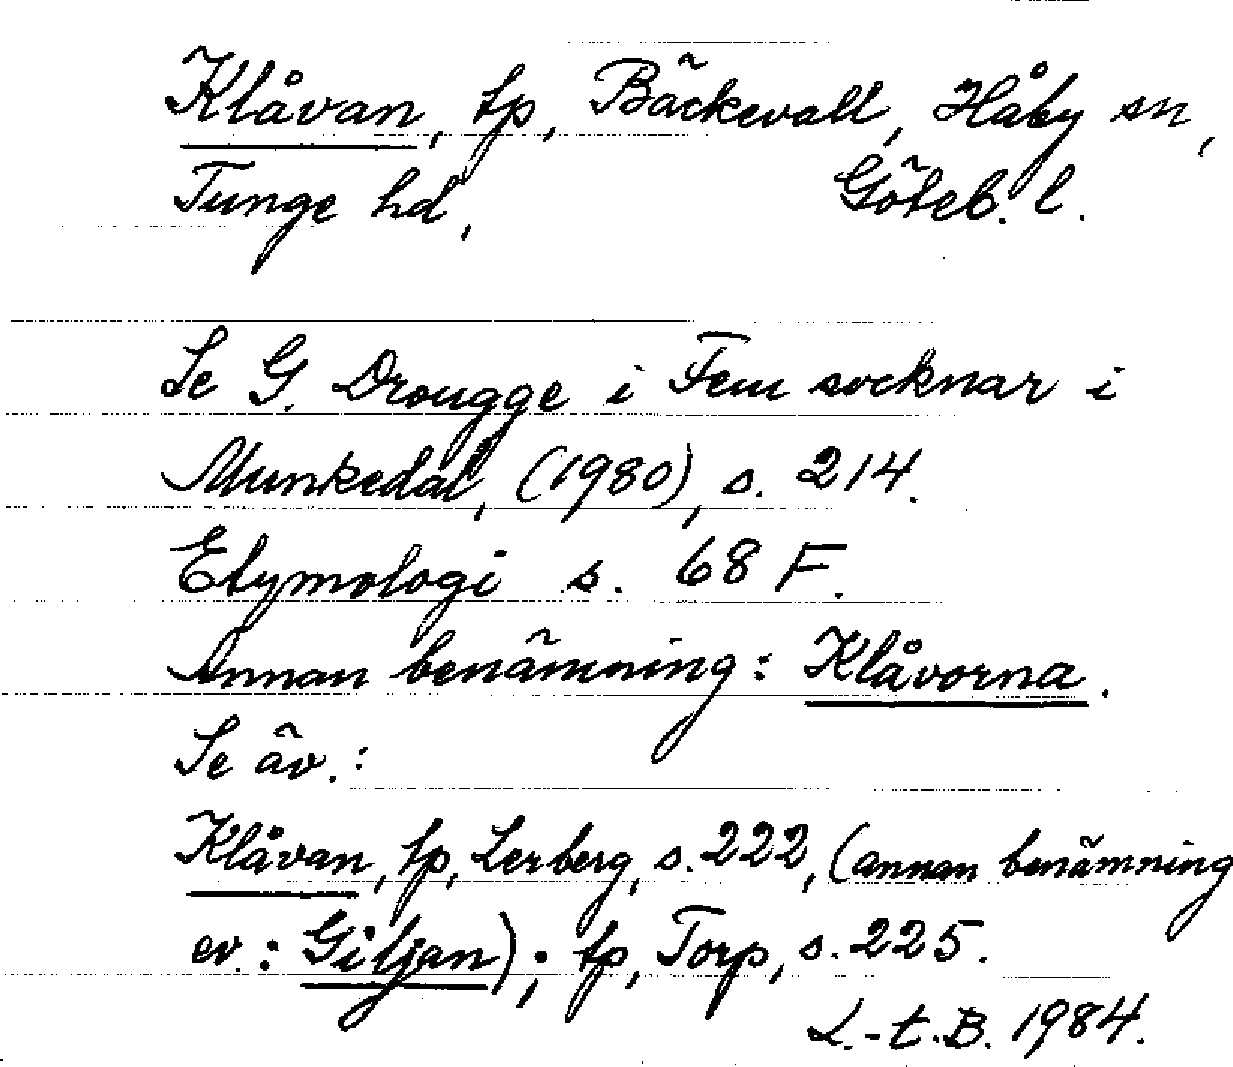 Klåvan, tp, Bäckevall, Håby sn,
Tunge hd, Göteb. l.
Se G. Drougge i Fem socknar i
Munkedal, (1980), s. 214.
Etymologi s. 68 F.
Annan benämning: Klåvorna.
Se äv.:
Klåvan, tp, Lerberg, s. 222, (annan benämning
ev.: Giljan); tp, Torp, s. 225.
L.-t. B. 1984.